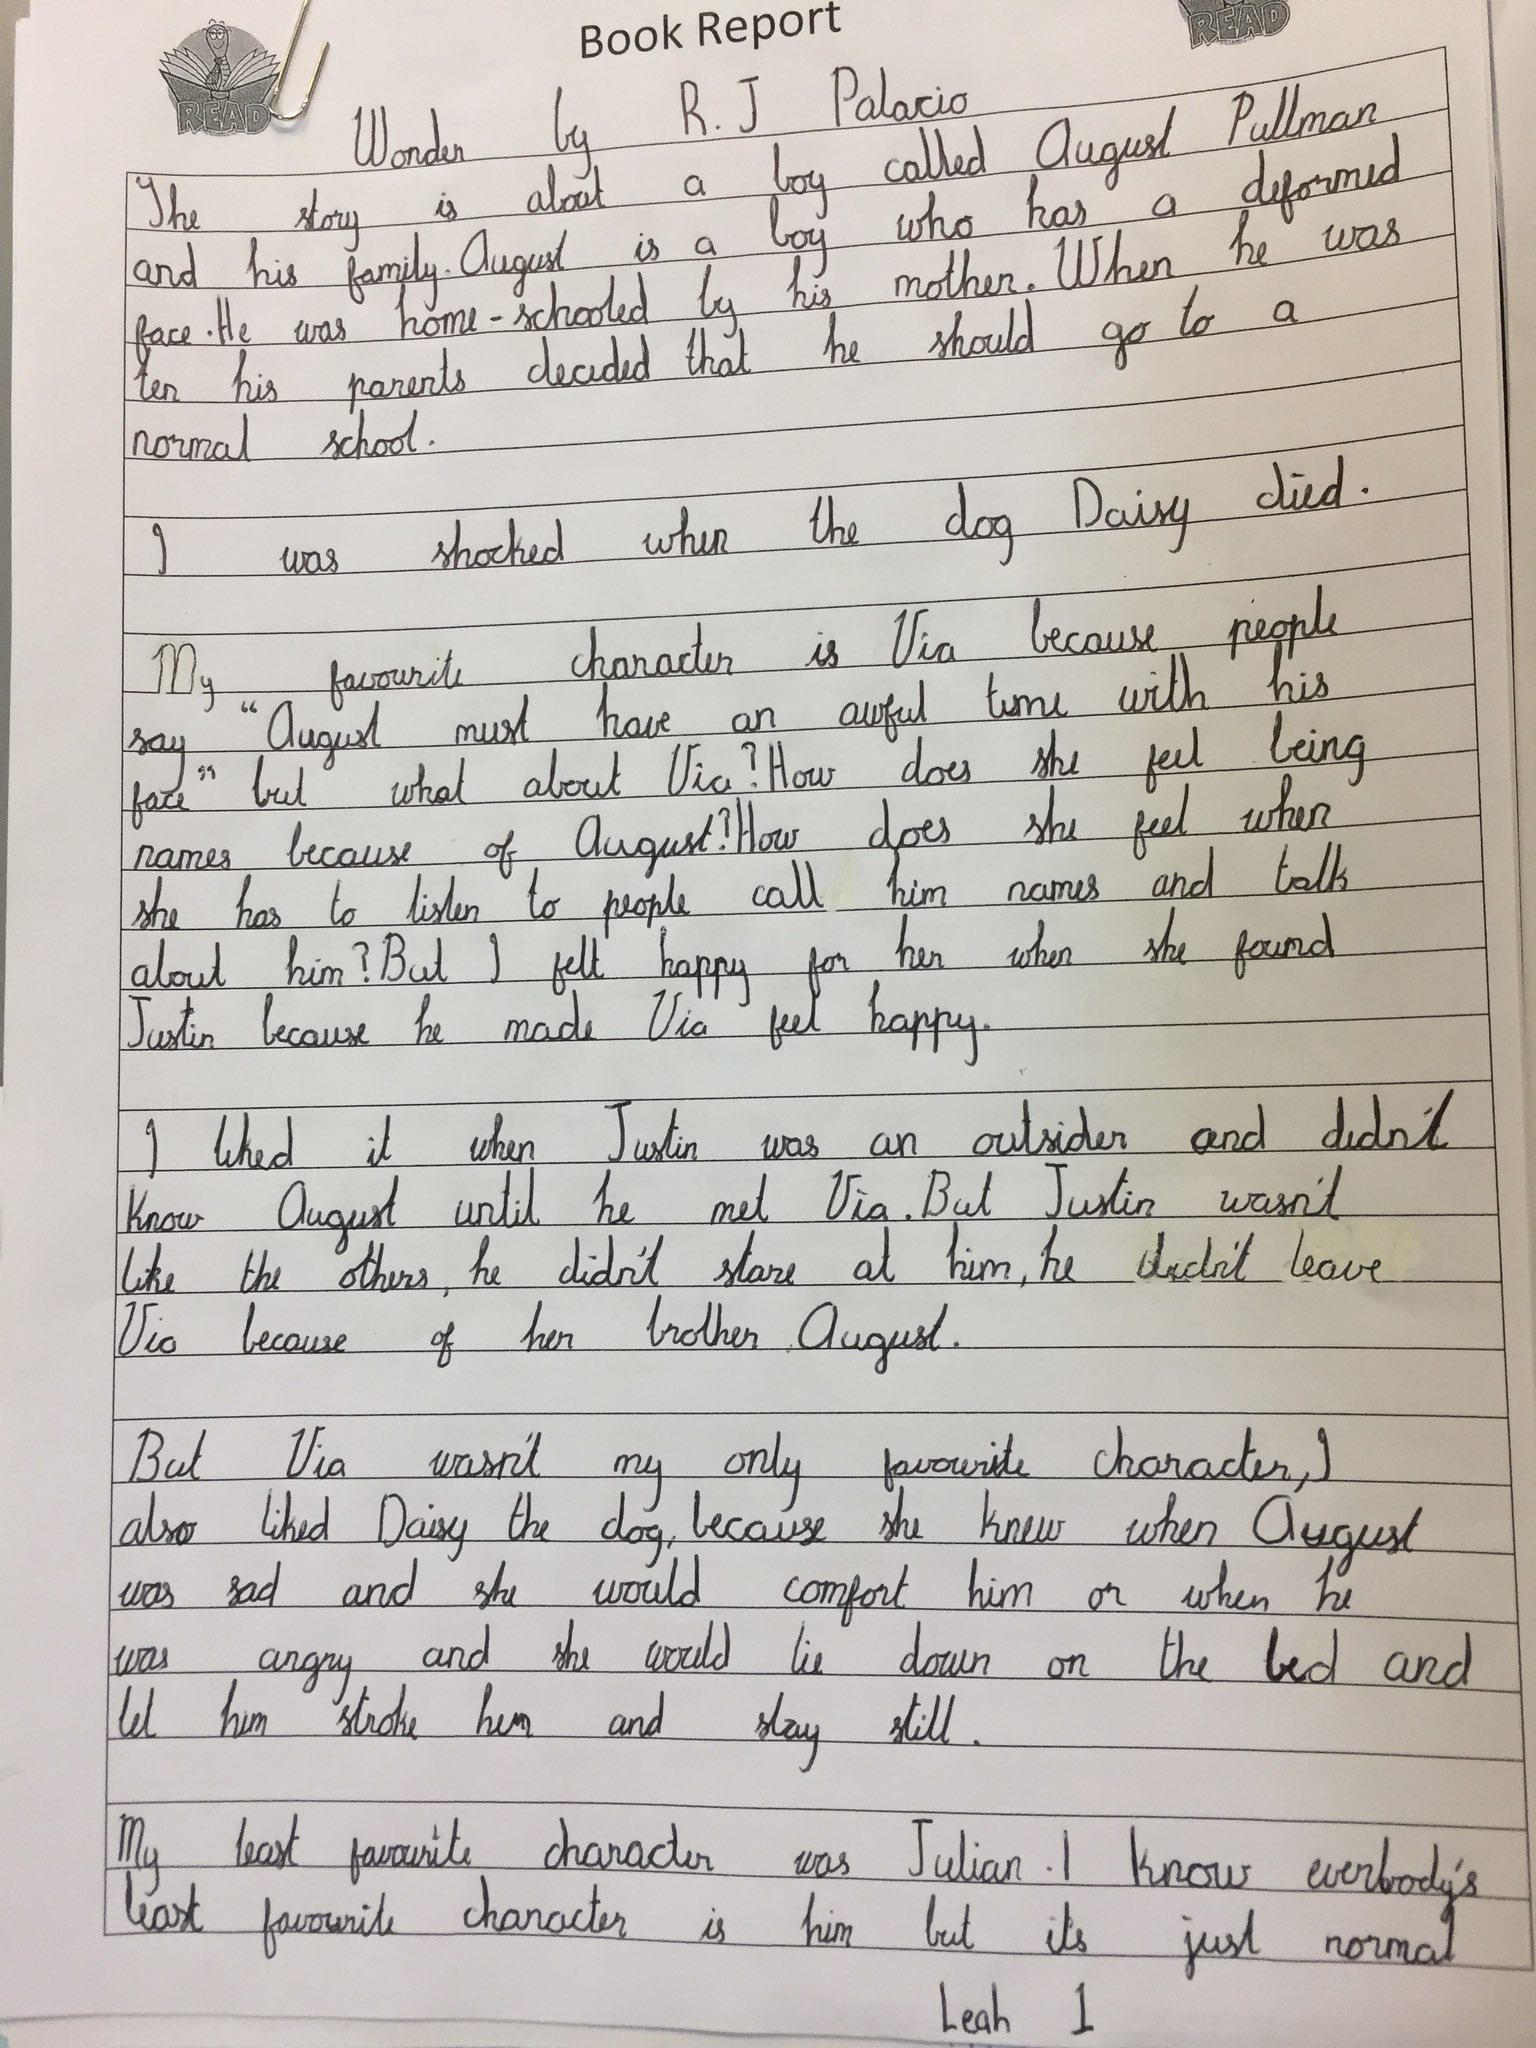 Book Report
READ
READ
Wonder by R.J Palacio
The story is about a boy called August Pullman
and his family. August is a boy who has a deformed
face. He was home-schooled by his mother. When he was
ten his parents decided that he should go to a
normal school.
I was shocked when the dog Daisy died.
My favourite character is Via because people
say "August must have an awful time with his
face" but what about Via? How does she feel being
names because of August? How does she feel when
she has to listen to people call him names and talk
about him? But I felt happy for her when she found
Justin because he made Via feel happy.
I liked it when Justin was an outsider and didn't
know August until he met Via. But Justin wasn't
like the others, he didn't stare at him, he didn't leave
Via because of her brother August.
But Via wasn't my only favourite character, I
also liked Daisy the dog, because she knew when August
was sad and she would comfort him or when he
was angry and she would lie down on the bed and
let him stroke her and stay still.
My least favourite character was Julian. I know everbody's
least favourite character is him but its just normal
Leah 1